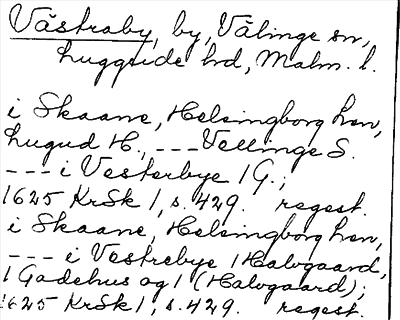 Västraby, by, Välinge sn,
Luggude hd, Malm. l.
i Skaane, Helsingborg Len,
Lugud H., --- Vellinge S.
--- i Vesterbye 1 G.;
1625 KrSk 1, s. 429. regest.
i Skaane, Helsingborg Len,
--- i Vestrebye 1 Halvgaard,
1 Gadehus og 1 (Halvgaard);
1625 KrSk 1, s. 429. regest.